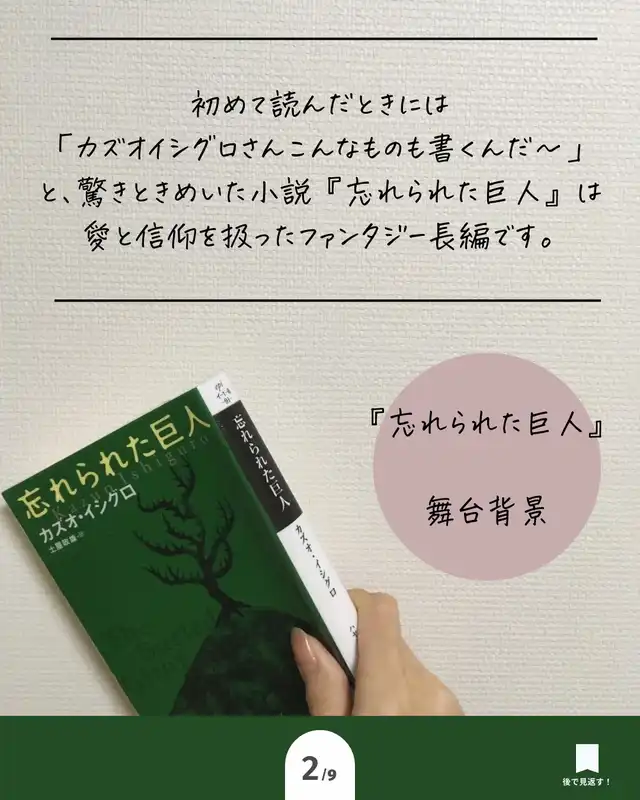 初めて読んだときには
「カズオイシグロさんこんなものも書くんだ～」
と、驚きときめいた小説『忘れられた巨人』は
愛と信仰を扱ったファンタジー長編です。
『忘れられた巨人』
舞台背景
忘れられた巨人
Kazuo Ishiguro
カズオ・イシグロ
土屋政雄・訳
忘れられた巨人
カズオ・イシグロ
2/9
後で見返す！